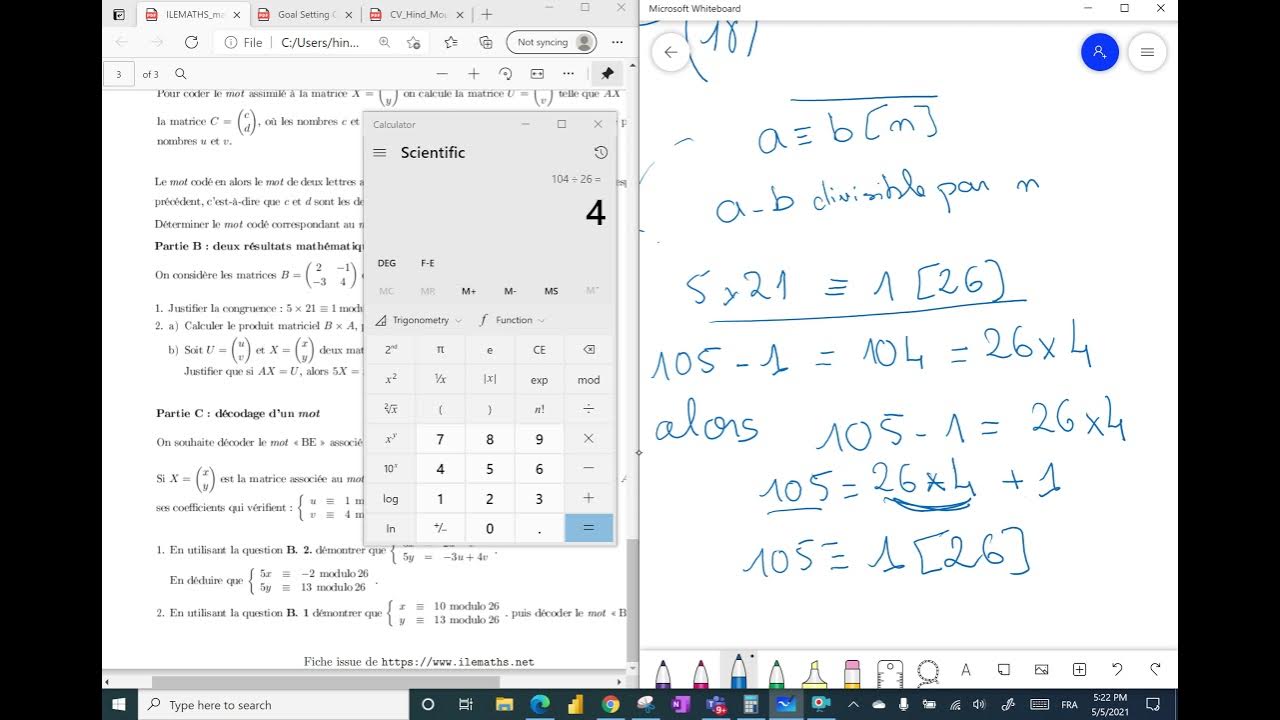 ILEMATHS_ma
Goal Setting
CV_Hind_Mou
File
C:/Users/hin...
Not syncing
3 of 3
Pour coder le mot assimilé à la matrice X = ( y) on calcule la matrice U = ( v) telle que AX
la matrice C = (c d), où les nombres c et
nombres u et v.
Le mot codé en alors le mot de deux lettres a
précédent, c'est-à-dire que c et d sont les de
Déterminer le mot codé correspondant au m
Partie B : deux résultats mathématiq
On considère les matrices B = (2 −1 −3 4)
1. Justifier la congruence : 5 × 21 ≡ 1 mod
2. a) Calculer le produit matriciel B × A, p
b) Soit U = (u v) et X = (x y) deux mat
Justifier que si AX = U, alors 5X =
Partie C : décodage d'un mot
On souhaite décoder le mot « BE » associé
Si X = (x y) est la matrice associée au mot
ses coefficients qui vérifient : { u ≡ 1 m
v ≡ 4 m
1. En utilisant la question B. 2. démontrer que {
5y = −3u + 4v .
En déduire que { 5x ≡ −2 modulo 26
5y ≡ 13 modulo 26 .
2. En utilisant la question B. 1 démontrer que { x ≡ 10 modulo 26
y ≡ 13 modulo 26 . puis décoder le mot « B
Fiche issue de https://www.ilemaths.net
Calculator
Scientific
104 ÷ 26 =
4
DEG F-E
MC MR M+ M- MS M˅
Trigonometry Function
2ⁿᵈ π e CE
x² ¹/x |x| exp mod
²√x ( ) n! ÷
xʸ 7 8 9 ×
10ˣ 4 5 6 −
log 1 2 3 +
ln +/− 0 . =
Microsoft Whiteboard
(18)
a ≡ b [n]
a - b divisible par n
5 × 21 ≡ 1 [26]
105 - 1 = 104 = 26 × 4
alors 105 - 1 = 26 × 4
105 = 26 × 4 + 1
105 ≡ 1 [26]
A
Type here to search
9+
FRA
5:22 PM
5/5/2021